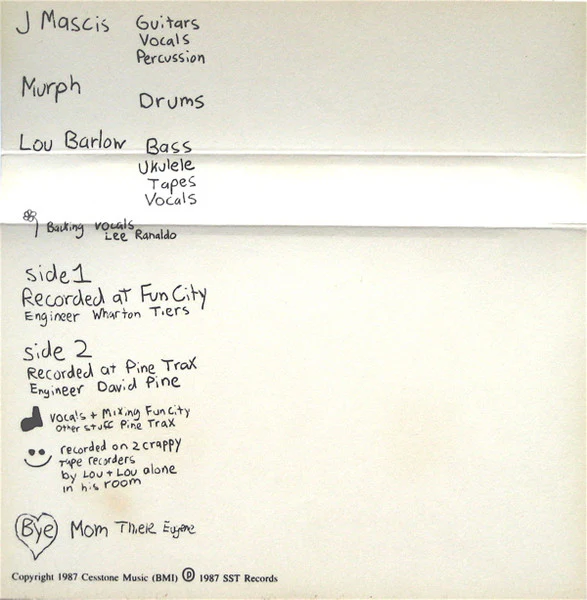 J Mascis Guitars
Vocals
Percussion
Murph
Drums
Lou Barlow Bass
Ukulele
Tapes
Vocals
Backing vocals
Lee Ranaldo
side 1
Recorded at Fun City
Engineer Wharton Tiers
side 2
Recorded at Pine Trax
Engineer David Pine
Vocals + Mixing Fun City
other stuff Pine Trax
recorded on 2 crappy
tape recorders
by Lou + Lou alone
in his room
Bye Mom Thiele Eugene
Copyright 1987 Cesstone Music (BMI) Ⓟ 1987 SST Records